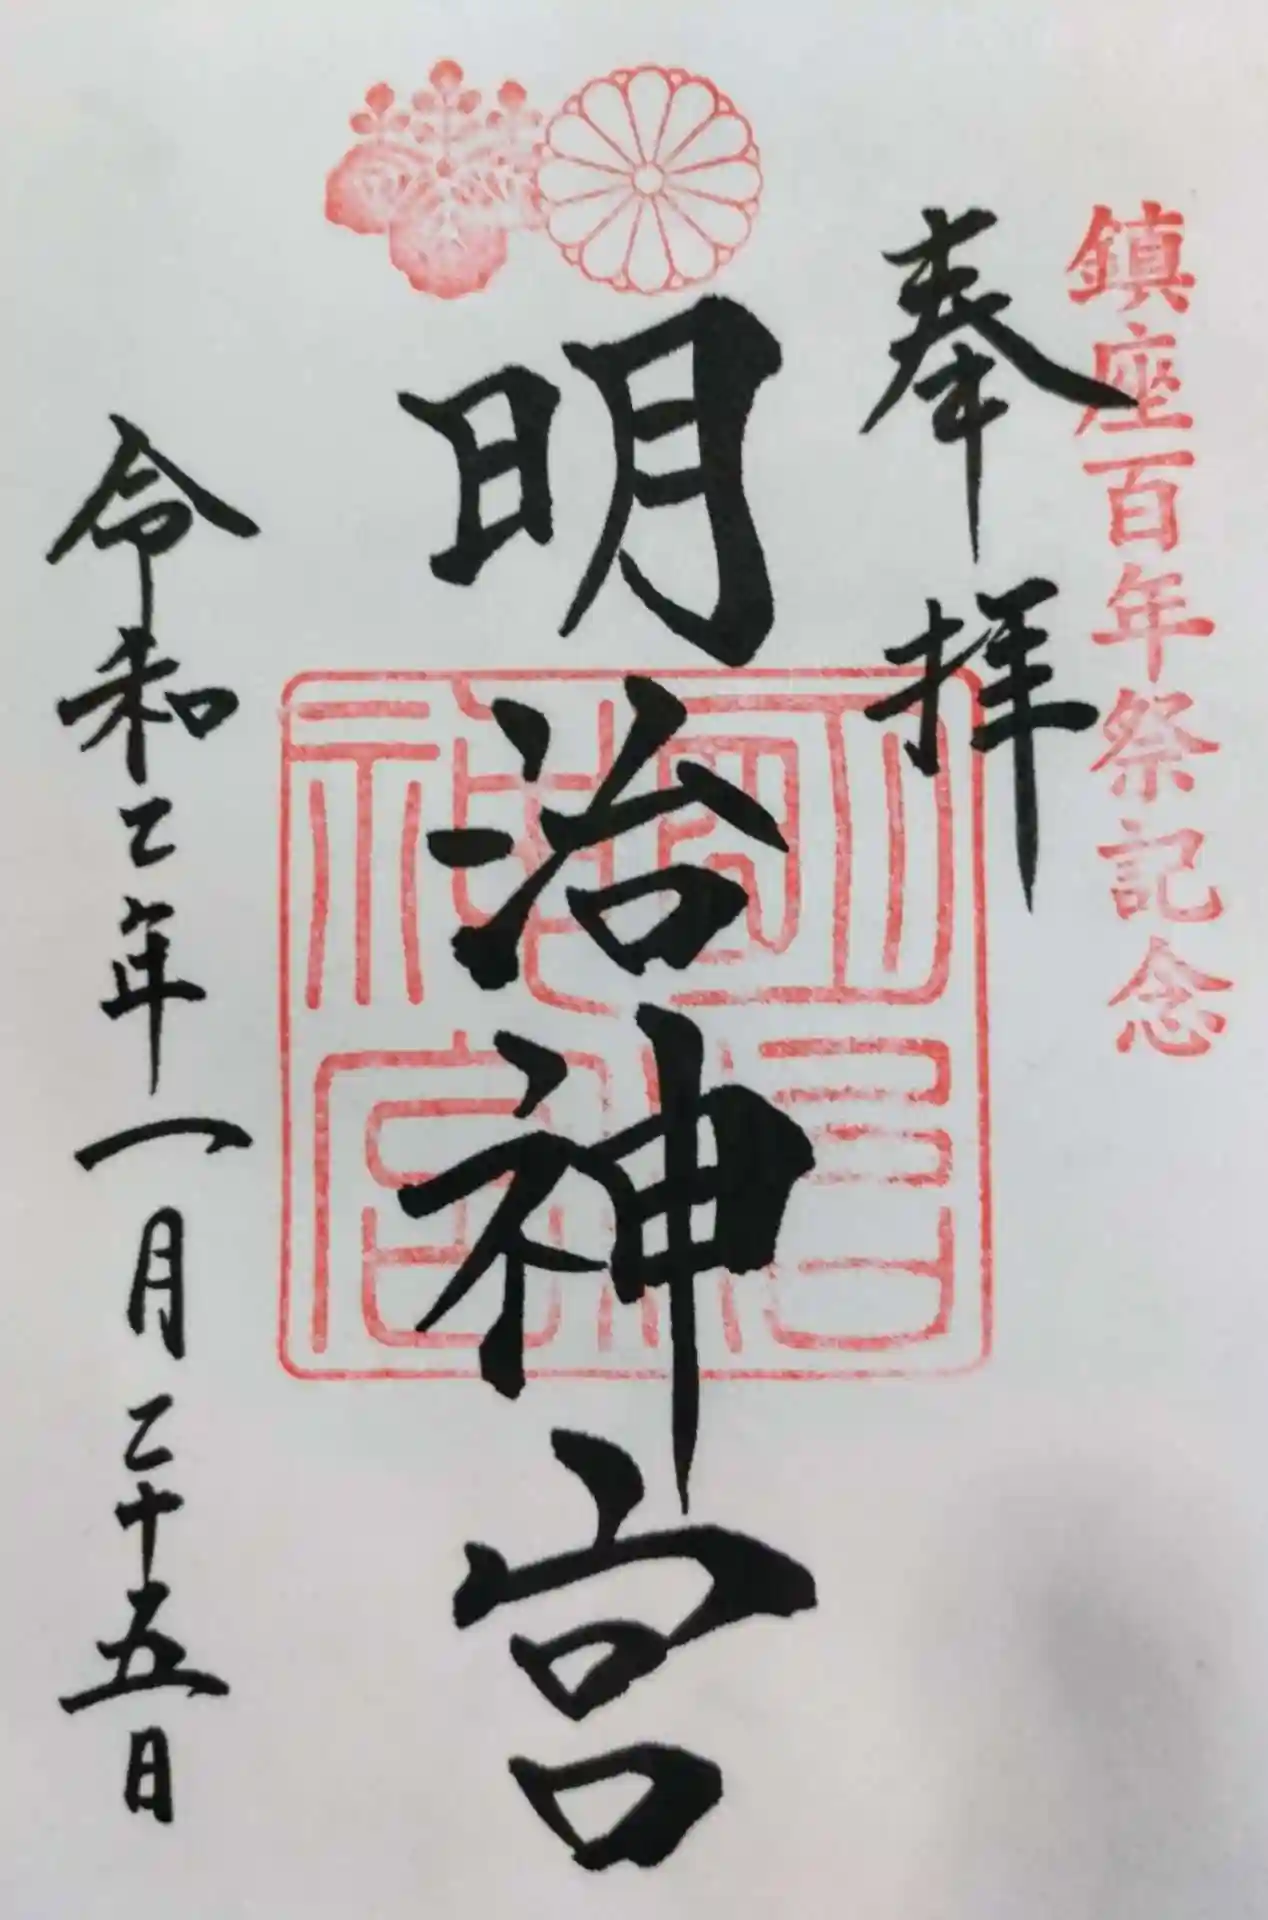 鎮座百年祭記念
奉拝
明治神宮
令和二年一月二十五日